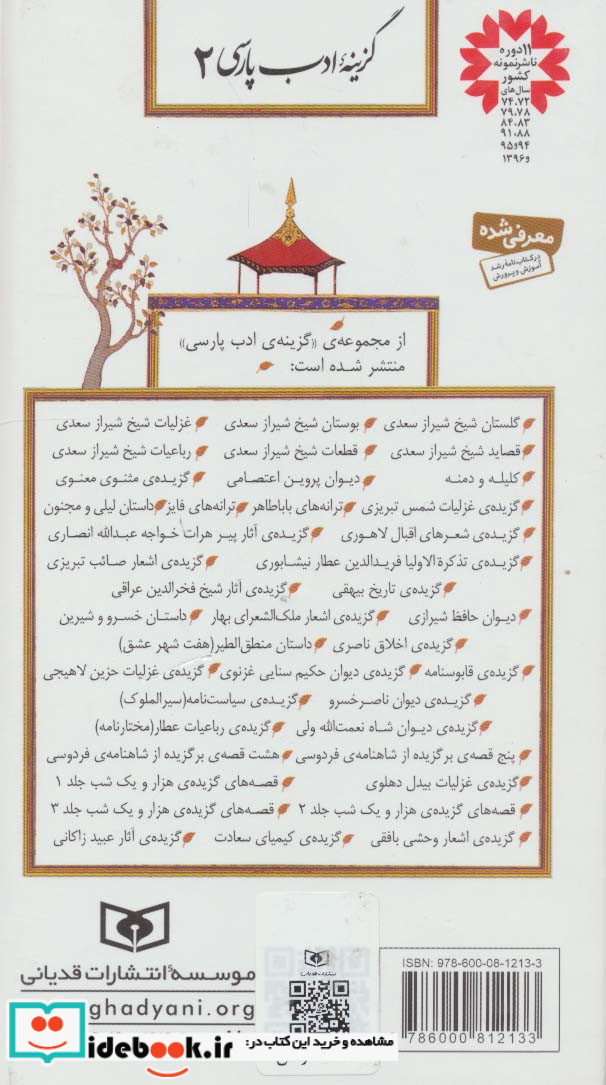 گزینهٔ ادب پارسی ۲
۱۱ دوره
ناشر نمونه
کشور
سال‌های
۷۴،۷۲
۷۹،۷۸
۸۴،۸۳
۹۱،۸۸
۹۴و۹۵
و۱۳۹۶
معرفی شده
در کتاب‌نامهٔ رشد
آموزش و پرورش
از مجموعه‌ی «گزینه‌ی ادب پارسی»
منتشر شده است:
گلستان شیخ شیراز سعدی بوستان شیخ شیراز سعدی غزلیات شیخ شیراز سعدی
قصاید شیخ شیراز سعدی قطعات شیخ شیراز سعدی رباعیات شیخ شیراز سعدی
کلیله و دمنه دیوان پروین اعتصامی گزیده‌ی مثنوی معنوی
گزیده‌ی غزلیات شمس تبریزی ترانه‌های باباطاهر ترانه‌های فایز داستان لیلی و مجنون
گزیده‌ی شعرهای اقبال لاهوری گزیده‌ی آثار پیر هرات خواجه عبدالله انصاری
گزیده‌ی تذکرة الاولیا فریدالدین عطار نیشابوری گزیده‌ی اشعار صائب تبریزی
گزیده‌ی تاریخ بیهقی گزیده‌ی آثار شیخ فخرالدین عراقی
دیوان حافظ شیرازی گزیده‌ی اشعار ملک‌الشعرای بهار داستان خسرو و شیرین
گزیده‌ی اخلاق ناصری داستان منطق‌الطیر(هفت شهر عشق)
گزیده‌ی قابوسنامه گزیده‌ی دیوان حکیم سنایی غزنوی گزیده‌ی غزلیات حزین لاهیجی
گزیده‌ی دیوان ناصرخسرو گزیده‌ی سیاست‌نامه(سیرالملوک)
گزیده‌ی دیوان شاه نعمت‌الله ولی گزیده‌ی رباعیات عطار(مختارنامه)
پنج قصه‌ی برگزیده از شاهنامه‌ی فردوسی هشت قصه‌ی برگزیده از شاهنامه‌ی فردوسی
گزیده‌ی غزلیات بیدل دهلوی قصه‌های گزیده‌ی هزار و یک شب جلد ۱
قصه‌های گزیده‌ی هزار و یک شب جلد ۲ قصه‌های گزیده‌ی هزار و یک شب جلد ۳
گزیده‌ی اشعار وحشی بافقی گزیده‌ی کیمیای سعادت گزیده‌ی آثار عبید زاکانی
موسسهٔ انتشارات قدیانی
ghadyani.org
ISBN: 978-600-08-1213-3
786000 812133
مشاهده و خرید این کتاب در:
idebook.ir